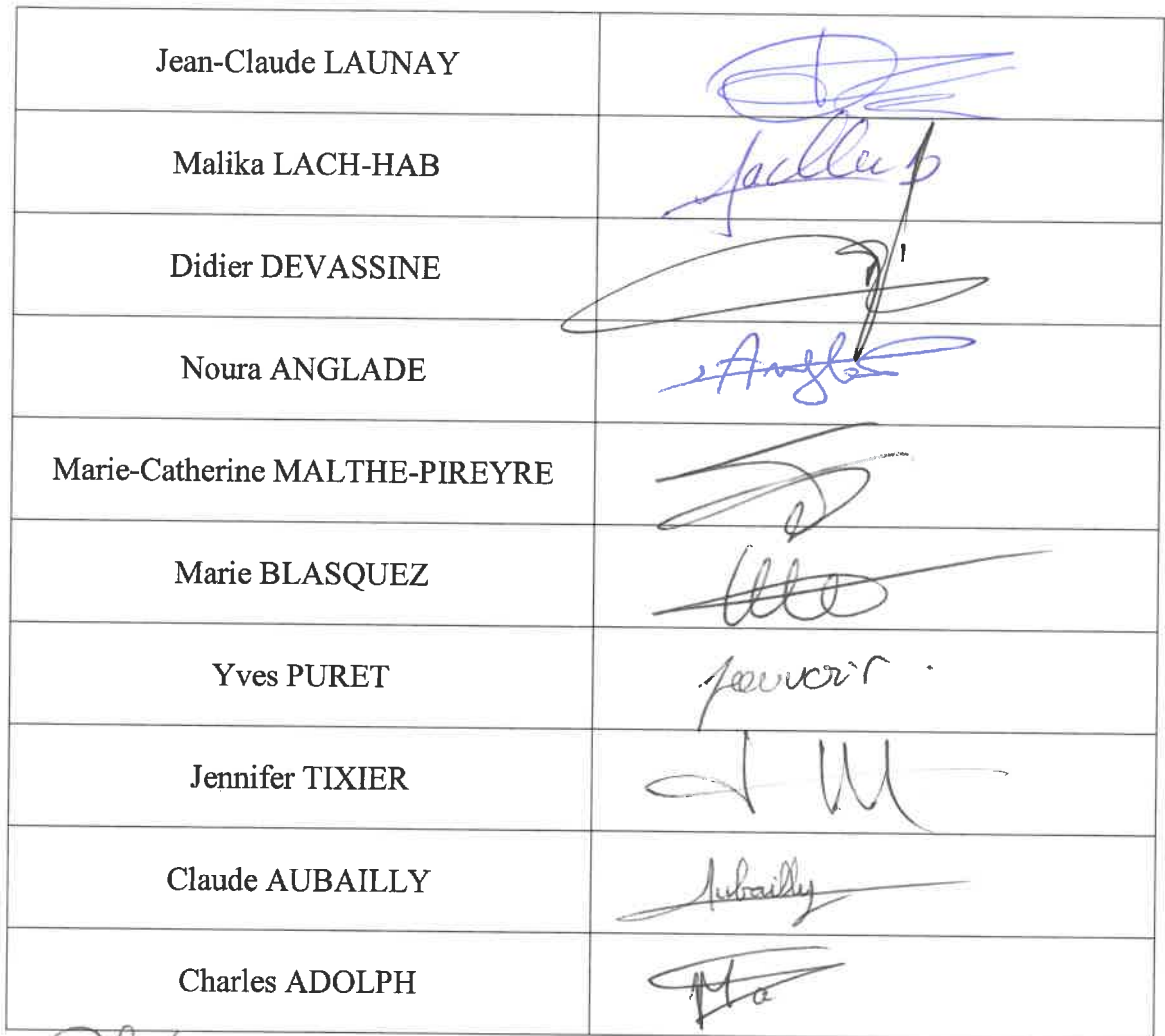 Jean-Claude LAUNAY
Malika LACH-HAB
Didier DEVASSINE
Noura ANGLADE
Marie-Catherine MALTHE-PIREYRE
Marie BLASQUEZ
Yves PURET
pouvoir.
Jennifer TIXIER
Claude AUBAILLY
Aubailly
Charles ADOLPH